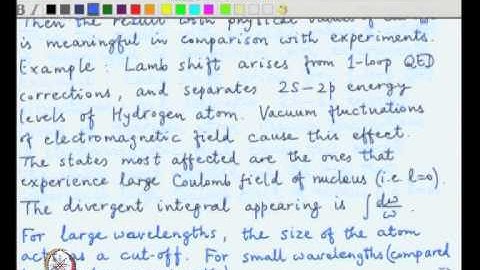 Then the result with physical values of
is meaningful in comparison with experiments.
Example: Lamb shift arises from 1-loop QED
corrections, and separates 2S-2p energy
levels of Hydrogen atom. Vacuum fluctuations
of electromagnetic field cause this effect.
The states most affected are the ones that
experience large Coulomb field of nucleus (i.e l=0).
The divergent integral appearing is ∫ dω/ω.
For large wavelengths, the size of the atom
acts as a cut-off. For small wavelengths (compared